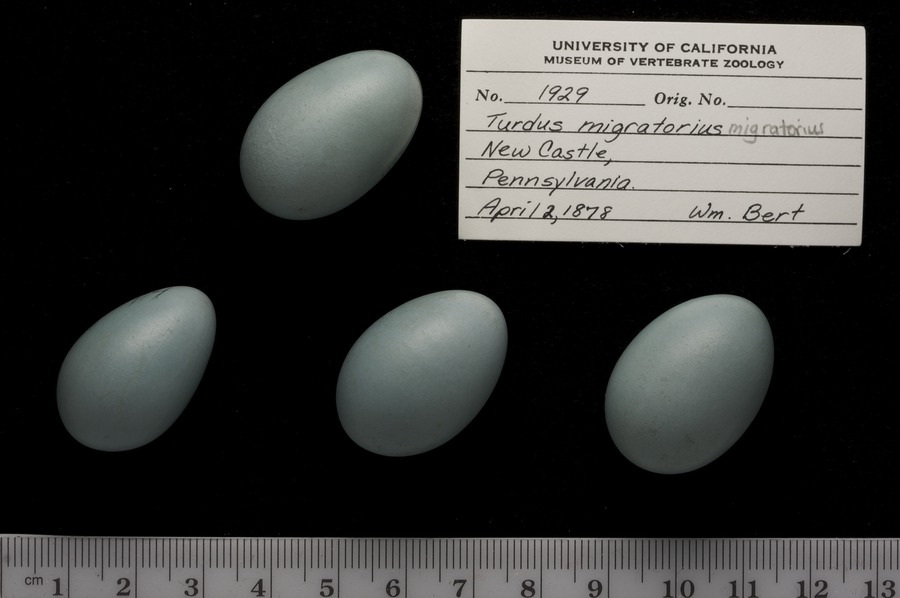 UNIVERSITY OF CALIFORNIA
MUSEUM OF VERTEBRATE ZOOLOGY
No. 1929 Orig. No.
Turdus migratorius migratorius
New Castle,
Pennsylvania.
April 2, 1878 Wm. Bert
cm 1 2 3 4 5 6 7 8 9 10 11 12 13